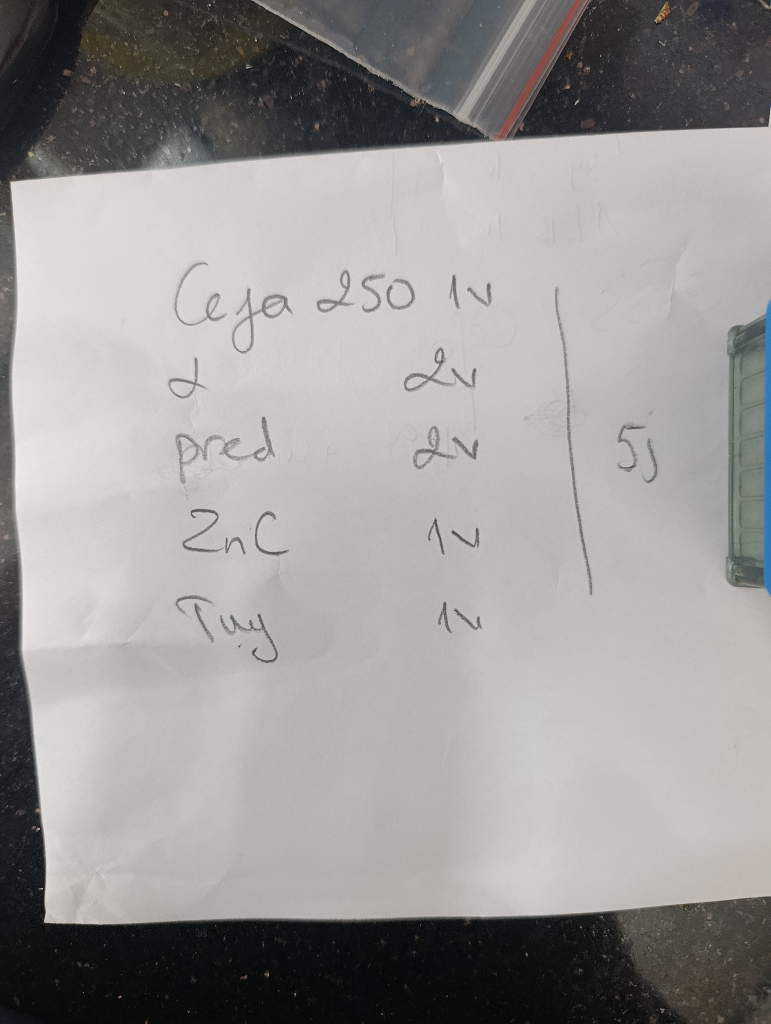 Cefa 250 1v
α 2v
pred 2v
5j
ZnC 1v
Tuy 1v